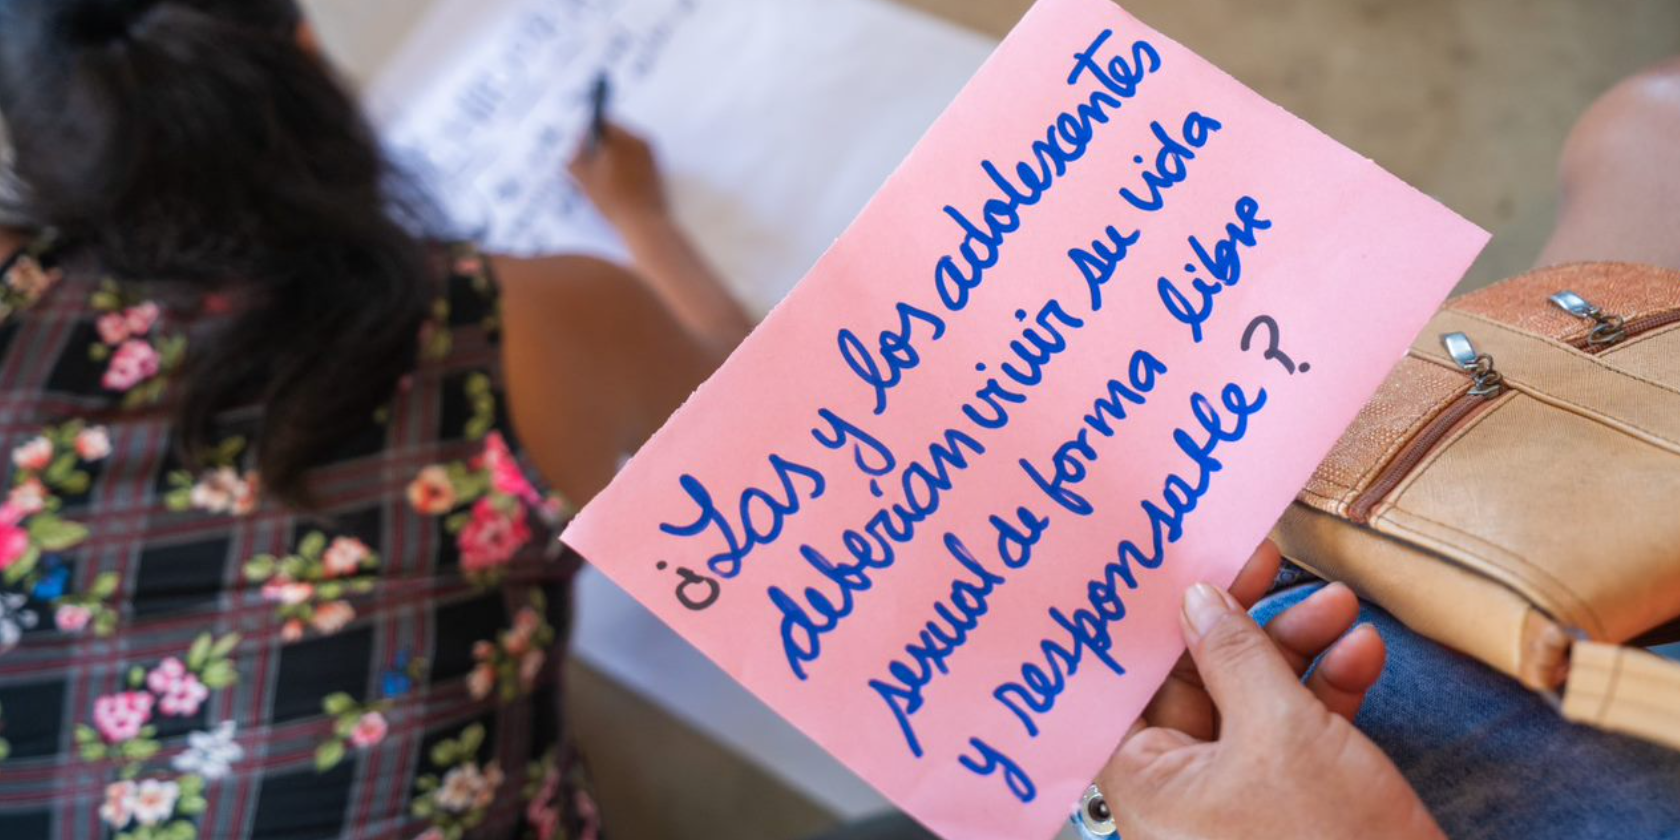 ¿Las y los adolescentes
deberían vivir su vida
sexual de forma libre
y responsable?